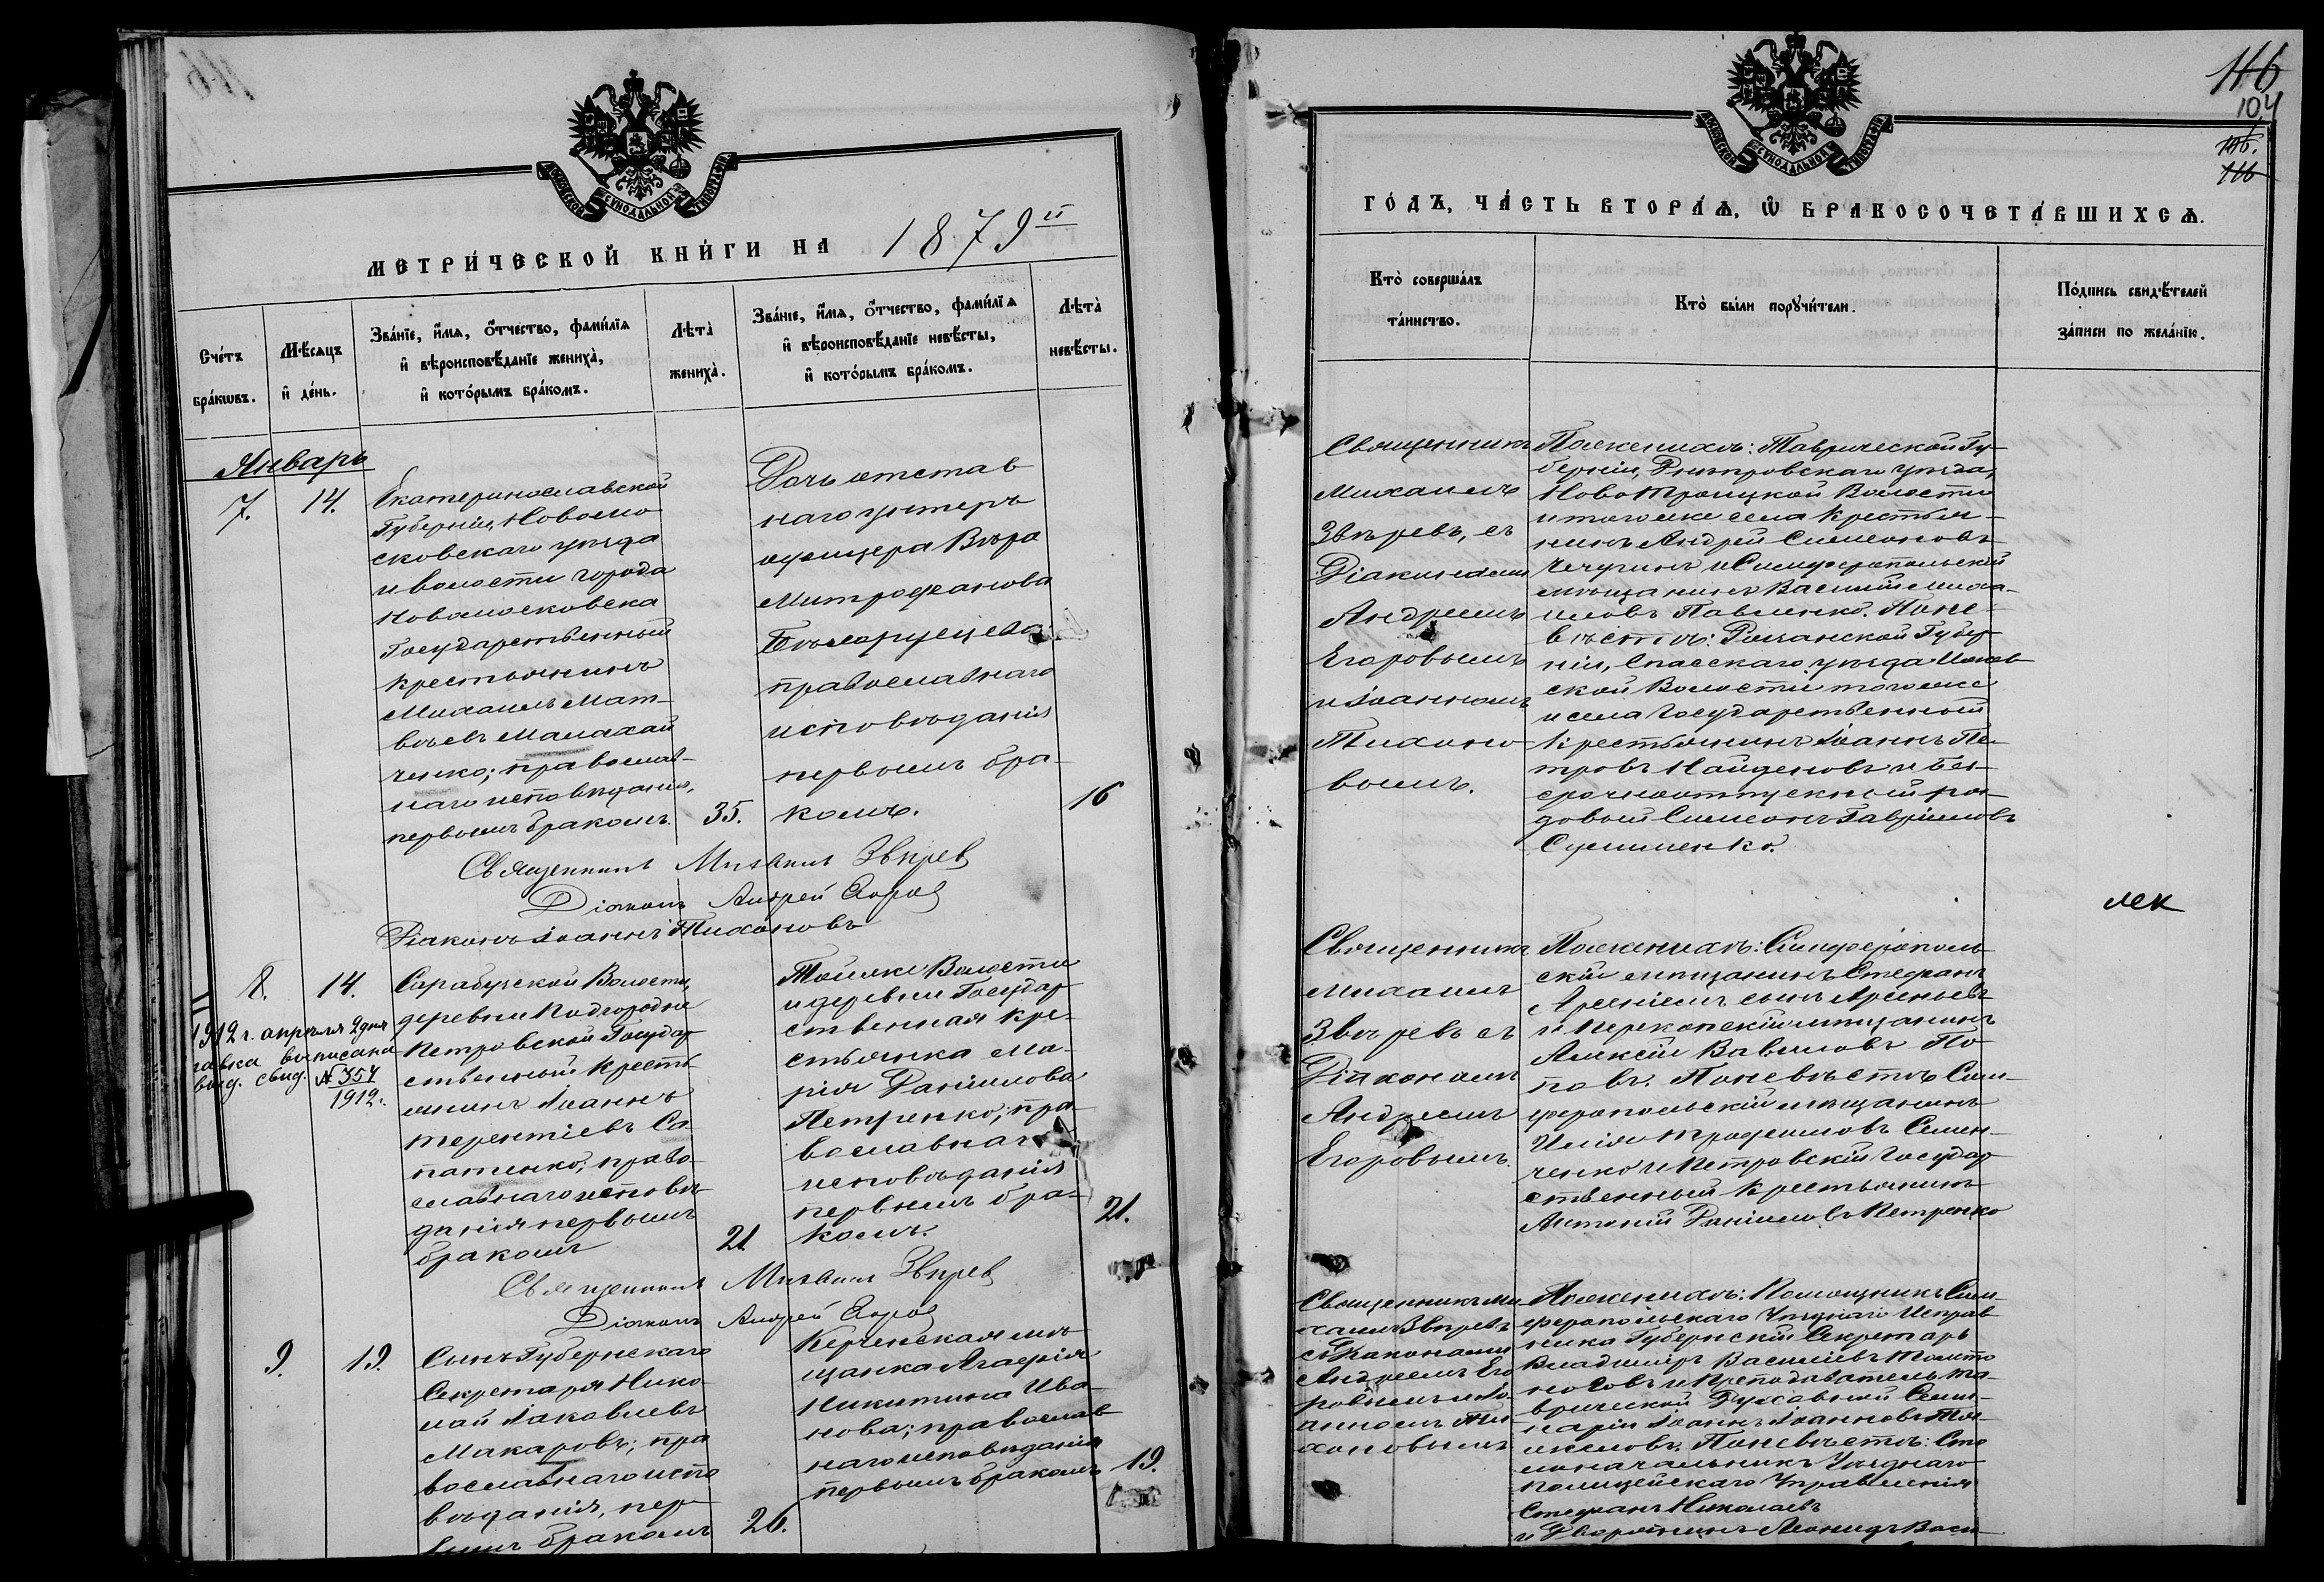 116
104
116.
116
МОСКОВСКОЙ СѴНОДАЛЬНОЙ ТИПОГРАФІИ
МЕТРИ́ЧЕСКОЙ КНИ́ГИ НА 1879й
Сче́тъ бра́кѡвъ.
Мѣ́сѧцъ и҆ де́нь.
Зва́нїе, и҆́мѧ, ѻ҆́тчество, фами́лїѧ
и҆ вѣроисповѣ́данїе жениха̀,
и҆ кото́рымъ бра́комъ.
Лѣта̀ жениха̀.
Зва́нїе, и҆́мѧ, ѻ҆́тчество, фами́лїѧ
и҆ вѣроисповѣ́данїе невѣ́сты,
и҆ кото́рымъ бра́комъ.
Лѣта̀ невѣ́сты.
Январь
7.
14.
Екатеринославской
Губерніи, Новомо
сковскаго уѣзда
и волости города
Новомосковска
Государственный
крестьянинъ
Михаилъ Мат-
вѣевъ Малахай
ченко; православ-
наго исповѣданія,
первымъ бракомъ.
35.
Дочь отстав
наго унтеръ
офицера Вѣра
Митрофанова
православнаго
исповѣданія
первымъ бра-
комъ.
16
Священникъ Михаилъ Звѣрев
Діаконъ Андрей Егоров
Діаконъ Іоаннъ Тихоновъ
8.
14.
1912 г. апрѣля 2 дня
выписана
выд. свид. № 354
1912.
Сарабузской Волости,
деревни Подгородне
Петровской Государ
ственный кресть
янинъ Іоаннъ
Терентіевъ Са
патенко; право
славнаго исповѣ
данія первымъ
бракомъ
21
Той же Волости
и деревни Государ
ственная кре-
стьянка Ма-
рія Даніилова
Петренко; пра
вославнаго
исповѣданія
первымъ бра-
комъ.
21.
Священникъ Михаилъ Звѣрев
Діаконъ Андрей Егоров
9.
19.
Сынъ Губернскаго
Секретаря Нико
лай Іаковлевъ
Макаровъ; пра
вославнаго испо
вѣданія, пер-
вымъ бракомъ
26.
Керченская мѣ
щанка Агафія
Никитина Ива-
нова; православ
наго исповѣданія
первымъ бракомъ
19.
МОСКОВСКОЙ СѴНОДАЛЬНОЙ ТИПОГРАФІИ
ГО́ДЪ, ЧА́СТЬ ВТОРА́Ѧ, Ѡ҆ БРАКОСОЧЕТА́ВШИХСѦ.
Кто̀ соверша́лъ
та́инство.
Кто̀ бы́ли порꙋчи́тели.
По́дпись свидѣ́телей
за́писи по жела́нїю.
Священникъ
Михаилъ
Звѣревъ, съ
Діаконами
Андреемъ
Егоровымъ
и Іоанномъ
Тихоно-
вымъ.
По женихѣ: Таврической Гу-
берніи, Днѣпровскаго уѣзда,
Ново Троицкой Волости
и того же села крестья-
нинъ Андрей Симеоновъ
Чечугинъ и Симферопольскій
мѣщанинъ Василій Миха-
иловъ Павленко. По не-
вѣстѣ: Рязанской Губер
ніи, Спасскаго уѣзда
ской Волости того же
и села Государственный
крестьянинъ Іоаннъ Пе-
тровъ Найденовъ и без-
срочноотпускный ря-
довый Симеонъ Гавріиловъ
лек
Священникъ
Михаилъ
Звѣревъ съ
Діакономъ
Андреемъ
Егоровымъ.
По женихѣ: Симферополь
скій мѣщанинъ Стефанъ
Арсеніевъ сынъ Арсеньевъ
и Перекопскій мѣщанинъ
Алексій Вавиловъ По
повъ. По невѣстѣ Сим-
феропольскій мѣщанинъ
Илія Трофимовъ Семен-
ченко и Петровскій Государ
ственный крестьянинъ
Антоній Даніиловъ Петренко
Священникъ Ми
хаилъ Звѣревъ
съ Діаконами
Андреемъ Его
ровымъ и Іо-
анномъ Ти-
хоновымъ
По женихѣ: Помощникъ Сим-
феропольскаго Уѣзднаго Исправ
ника Губернскій Секретарь
Владиміръ Василіевъ
и Преподаватель Та-
врической Духовной Семи-
наріи Іоаннъ Іоанновъ
По невѣстѣ: Сто
лоначальникъ Уѣзднаго
Полицейскаго Управленія
Стефанъ Николаевъ
и Дворянинъ Леонидъ Васи-